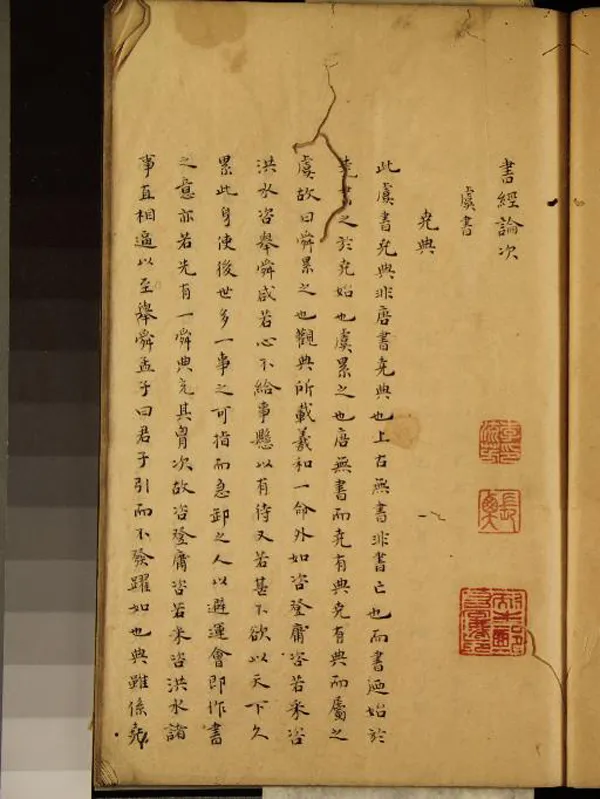 書經論次
虞書
堯典
此虞書堯典非唐書堯典也上古無書非書亡也而書廼始於
堯書之於堯始也虞累之也唐無書而堯有典堯有典而屬之
虞故曰舜累之也觀典所載羲和一命外如咨登庸咨若采咨
洪水咨舉舜咸若心不給事懸以有待又若甚不欲以天下久
累此身使後世多一事之可指而急卸之人以避運會即作書
之意亦若先有一舜典充其胷次故咨登庸咨若采咨洪水諸
事直相逼以至舉舜孟子曰君子引而不發躍如也典雖係堯